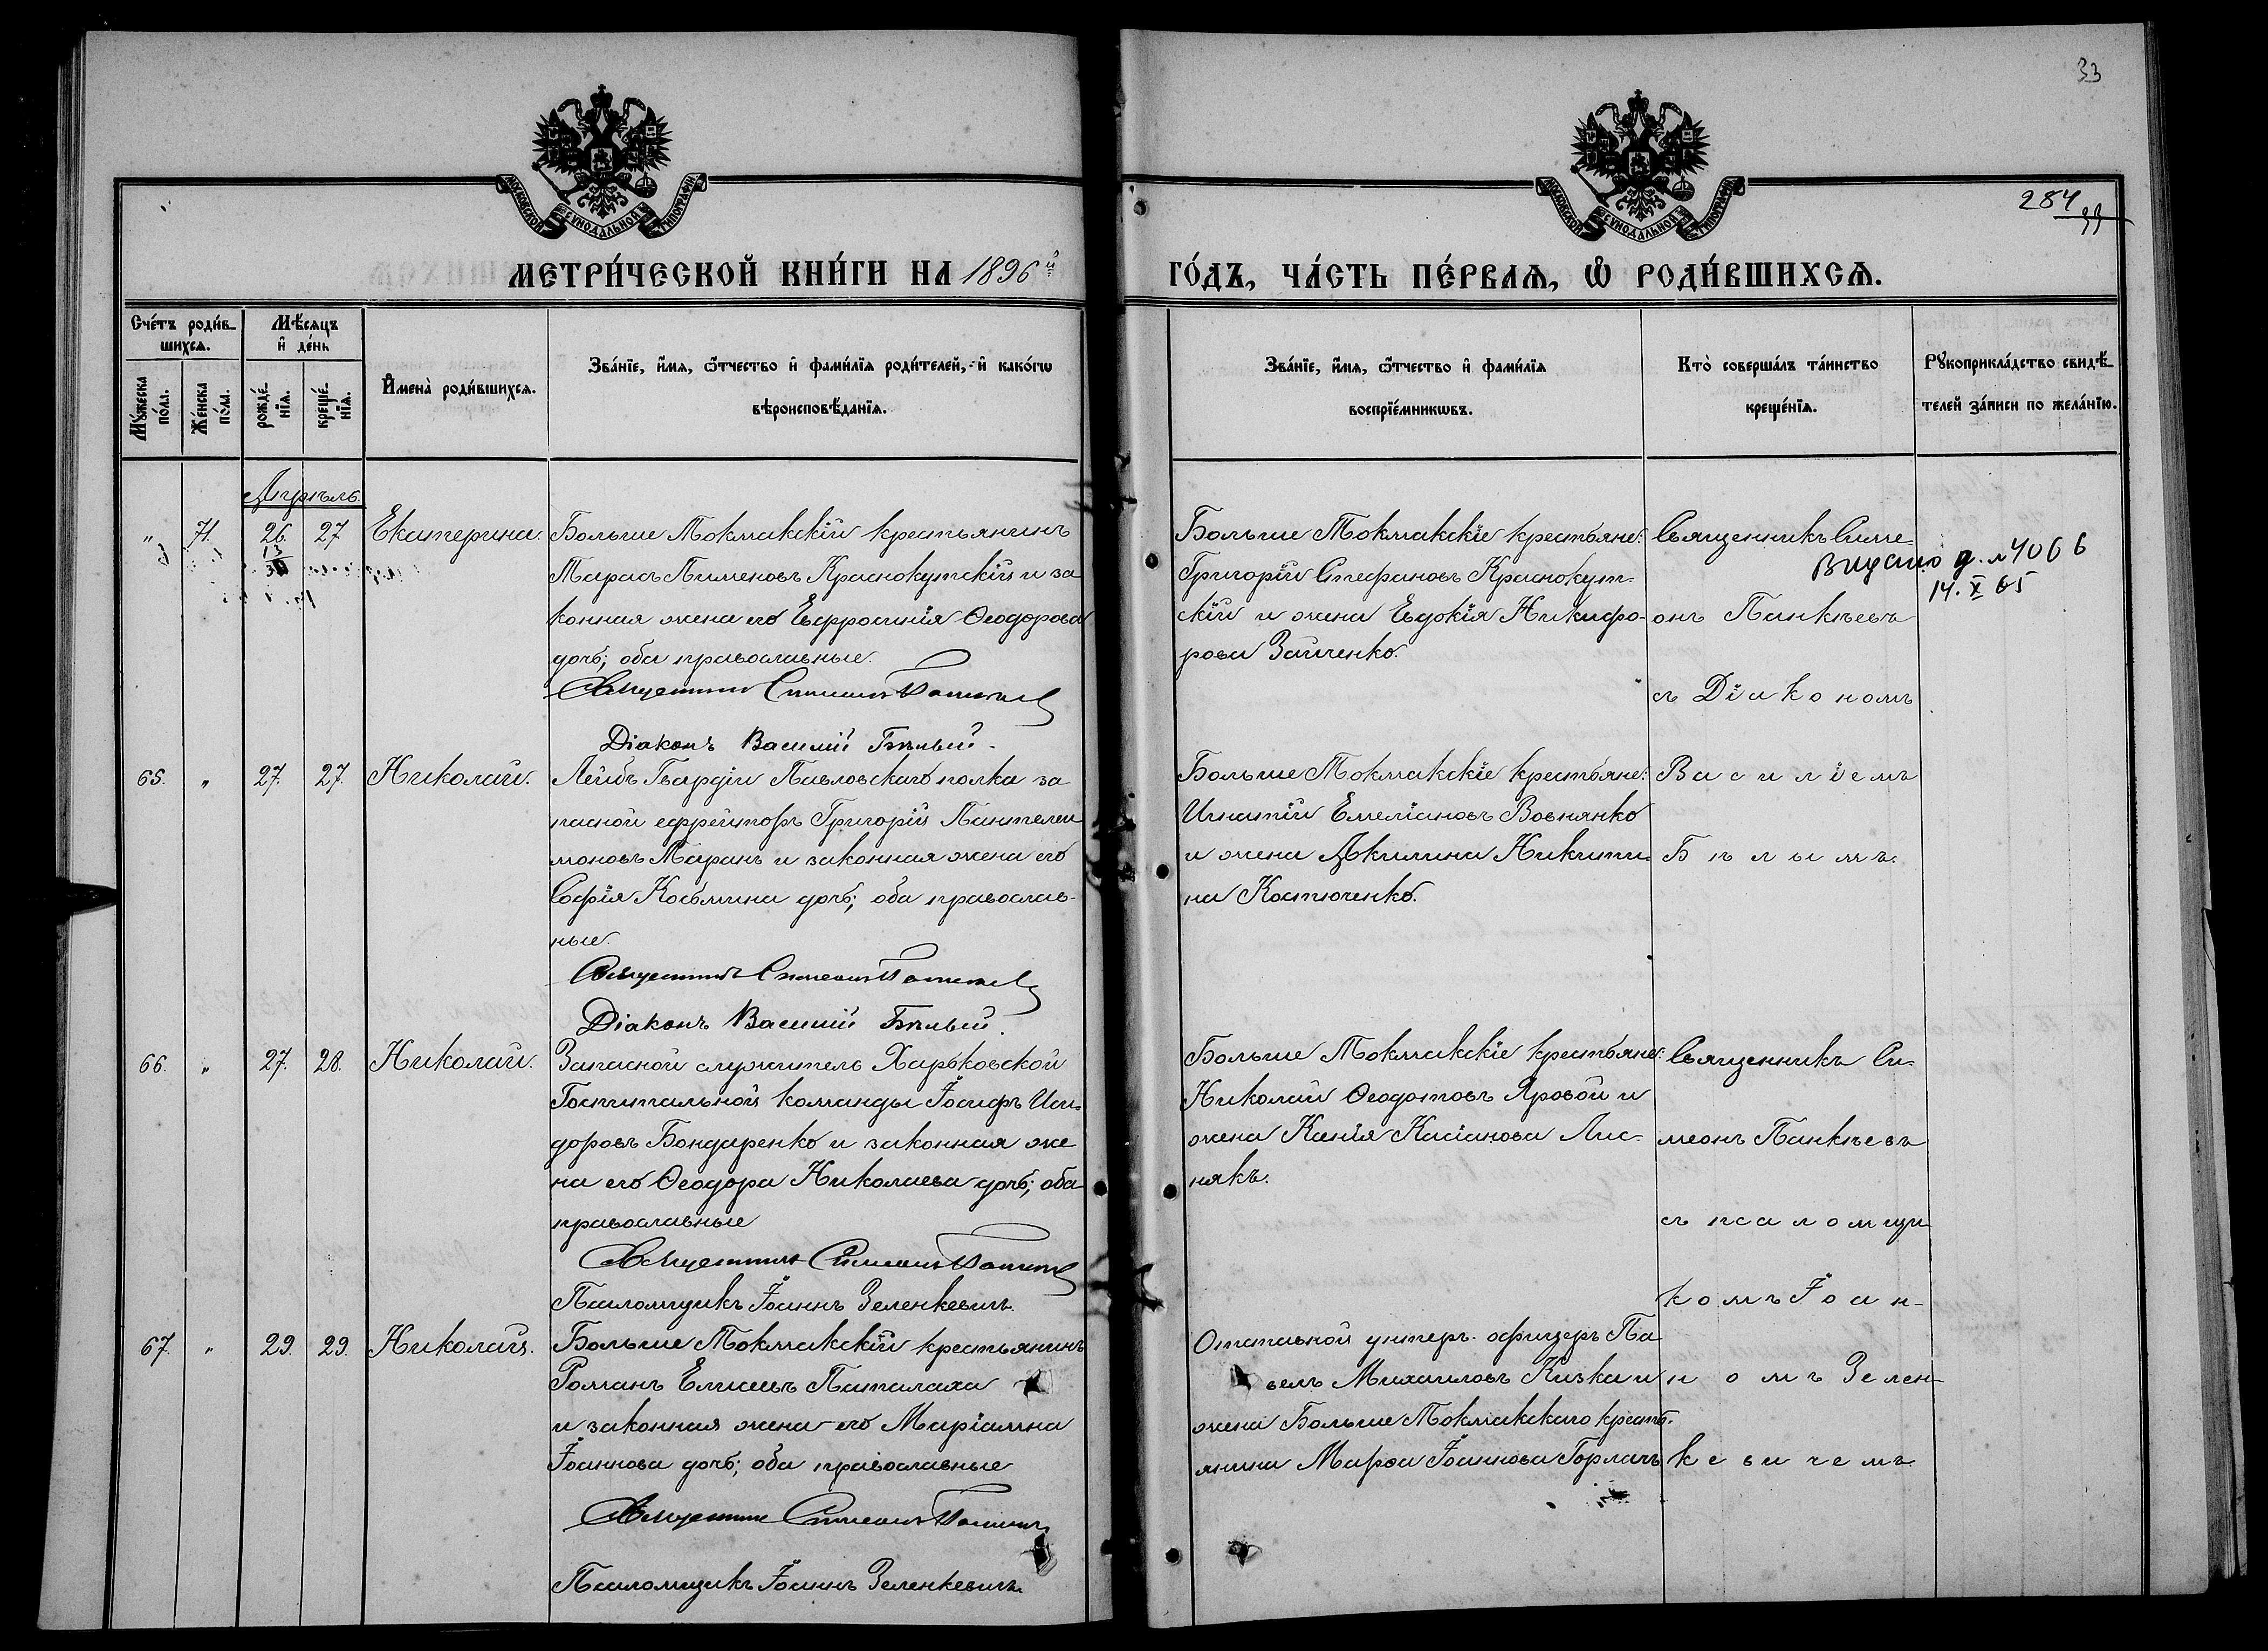 33
284
33
МОСКОВСКОЙ СѴНОДАЛЬНОЙ ТИПОГРАФІИ
МОСКОВСКОЙ СѴНОДАЛЬНОЙ ТИПОГРАФІИ
МЕТРИ́ЧЕСКОЙ КНИ́ГИ НА 1896й
ГО́ДЪ, ЧА́СТЬ ПЕ́РВАѦ, Ѡ҆ РОДИ́ВШИХСѦ.
Сче́тъ роди́в-
шихсѧ.
Мѣ́сяцъ
и҆ де́нь
Мꙋ́жеска
по́ла.
Же́нска
по́ла.
рожде́-
нїѧ.
креще́-
нїѧ.
И҆мена̀ роди́вшихсѧ.
Зва́нїе, и҆́мѧ, ѻ҆́тчество и҆ фами́лїѧ роди́телей, и҆ како́гѡ
вѣроисповѣ́данїѧ.
Зва́нїе, и҆́мѧ, ѻ҆́тчество и҆ фами́лїѧ
воспрїе́мникѡвъ.
Кто̀ соверша́лъ та́инство
креще́нїѧ.
Рꙋкоприкла́дство свидѣ́-
телей за́писи по жела́нїю.
Апрѣль.
" 71. 26. 27 Екатерина.
13
30
Больше Токмакскій крестьянинъ
Тарасъ Пименовъ Краснокутскій и за
конная жена его Евфросинія Ѳеодорова
дочь; оба православные.
Священникъ Симеонъ Панкѣевъ
Діаконъ Василій Бѣлый.
Больше Токмакскіе крестьяне:
Григорій Стефановъ Краснокут-
скій и жена Евдокія Никифо-
рова Зайченко.
Священникъ Симе-
онъ Панкѣевъ
съ Діакономъ
Василіемъ
Бѣлымъ.
Видано д. №4066
14. X 65
65. " 27. 27. Николай.
Лейбъ Гвардіи Павловскаго полка за
пасной ефрейторъ Григорій Пантелеи
моновъ Таранъ и законная жена его
Софія Косьмина дочь; оба православ-
ные.
Священникъ Симеонъ Панкѣевъ
Діаконъ Василій Бѣлый.
Больше Токмакскіе крестьяне:
Игнатій Емеліановъ Вовнянко
и жена Акилина Никити-
на Костюченко.
66. " 27. 28. Николай.
Запасной служитель Харьковской
Госпитальной команды Іосифъ Иси-
доровъ Бондаренко и законная же
на его Ѳеодора Николаева дочь; оба
православные
Священникъ Симеонъ Панкѣевъ
Псаломщикъ Іоаннъ Зеленкевичъ.
Больше Токмакскіе крестьяне:
Николай Ѳеодотовъ Яровой и
жена Ксенія Касіанова Лис-
някъ.
Священникъ Си-
меонъ Панкѣевъ
съ псаломщи
комъ Іоан-
номъ Зелен-
кевичемъ
67. " 29. 29. Николай.
Больше Токмакскій крестьянинъ
Романъ Елисеевъ Паталаха
и законная жена его Маріамна
Іоаннова дочь; оба православные
Священникъ Симеонъ Панкѣевъ
Псаломщикъ Іоаннъ Зеленкевичъ.
Отставной унтеръ-офицеръ Па
велъ Михаиловъ Кизка и
жена Больше Токмакскаго кресть-
янина Марѳа Іоаннова Горлачъ